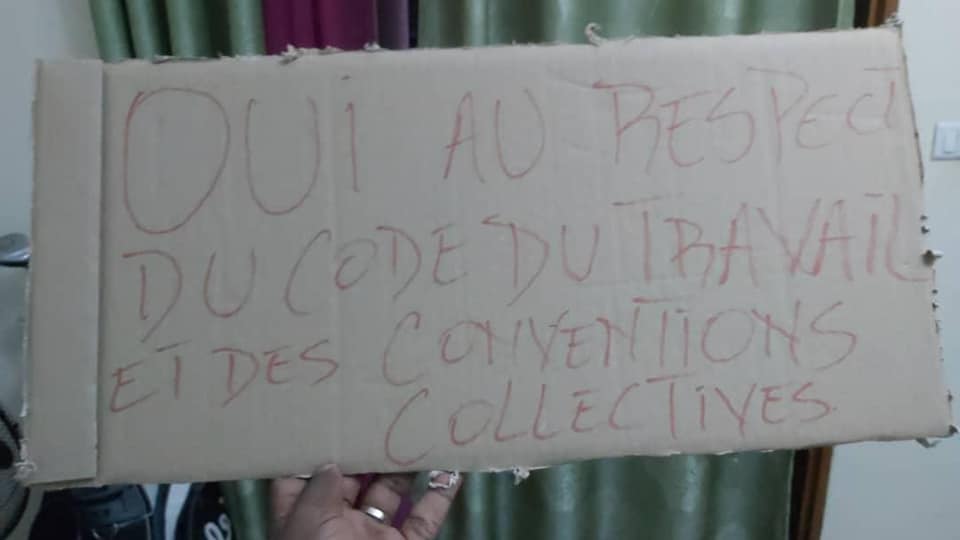 OUI AU RESPECT
DU CODE DU TRAVAIL
ET DES CONVENTIONS
COLLECTIVES.